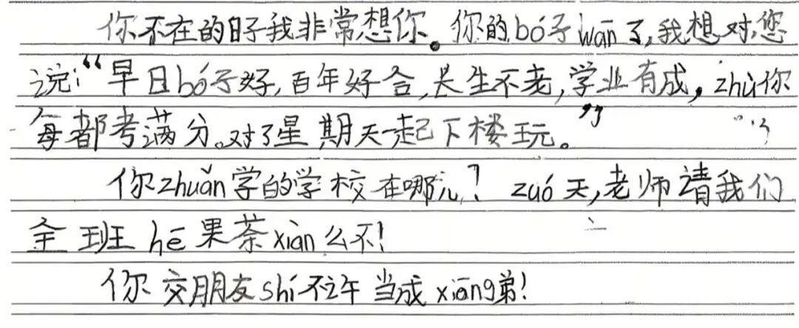 你不在的日子我非常想你。你的bó子wān了,我想对您
说:“早日bó子好,百年好合,长生不老,学业有成,zhù你
每都考满分。对了星期天一起下楼玩。”
你zhuǎn学的学校在哪儿?zuó天,老师请我们
全班hē果茶xiàn么不!
你交朋友shí不许当成xiāng弟!